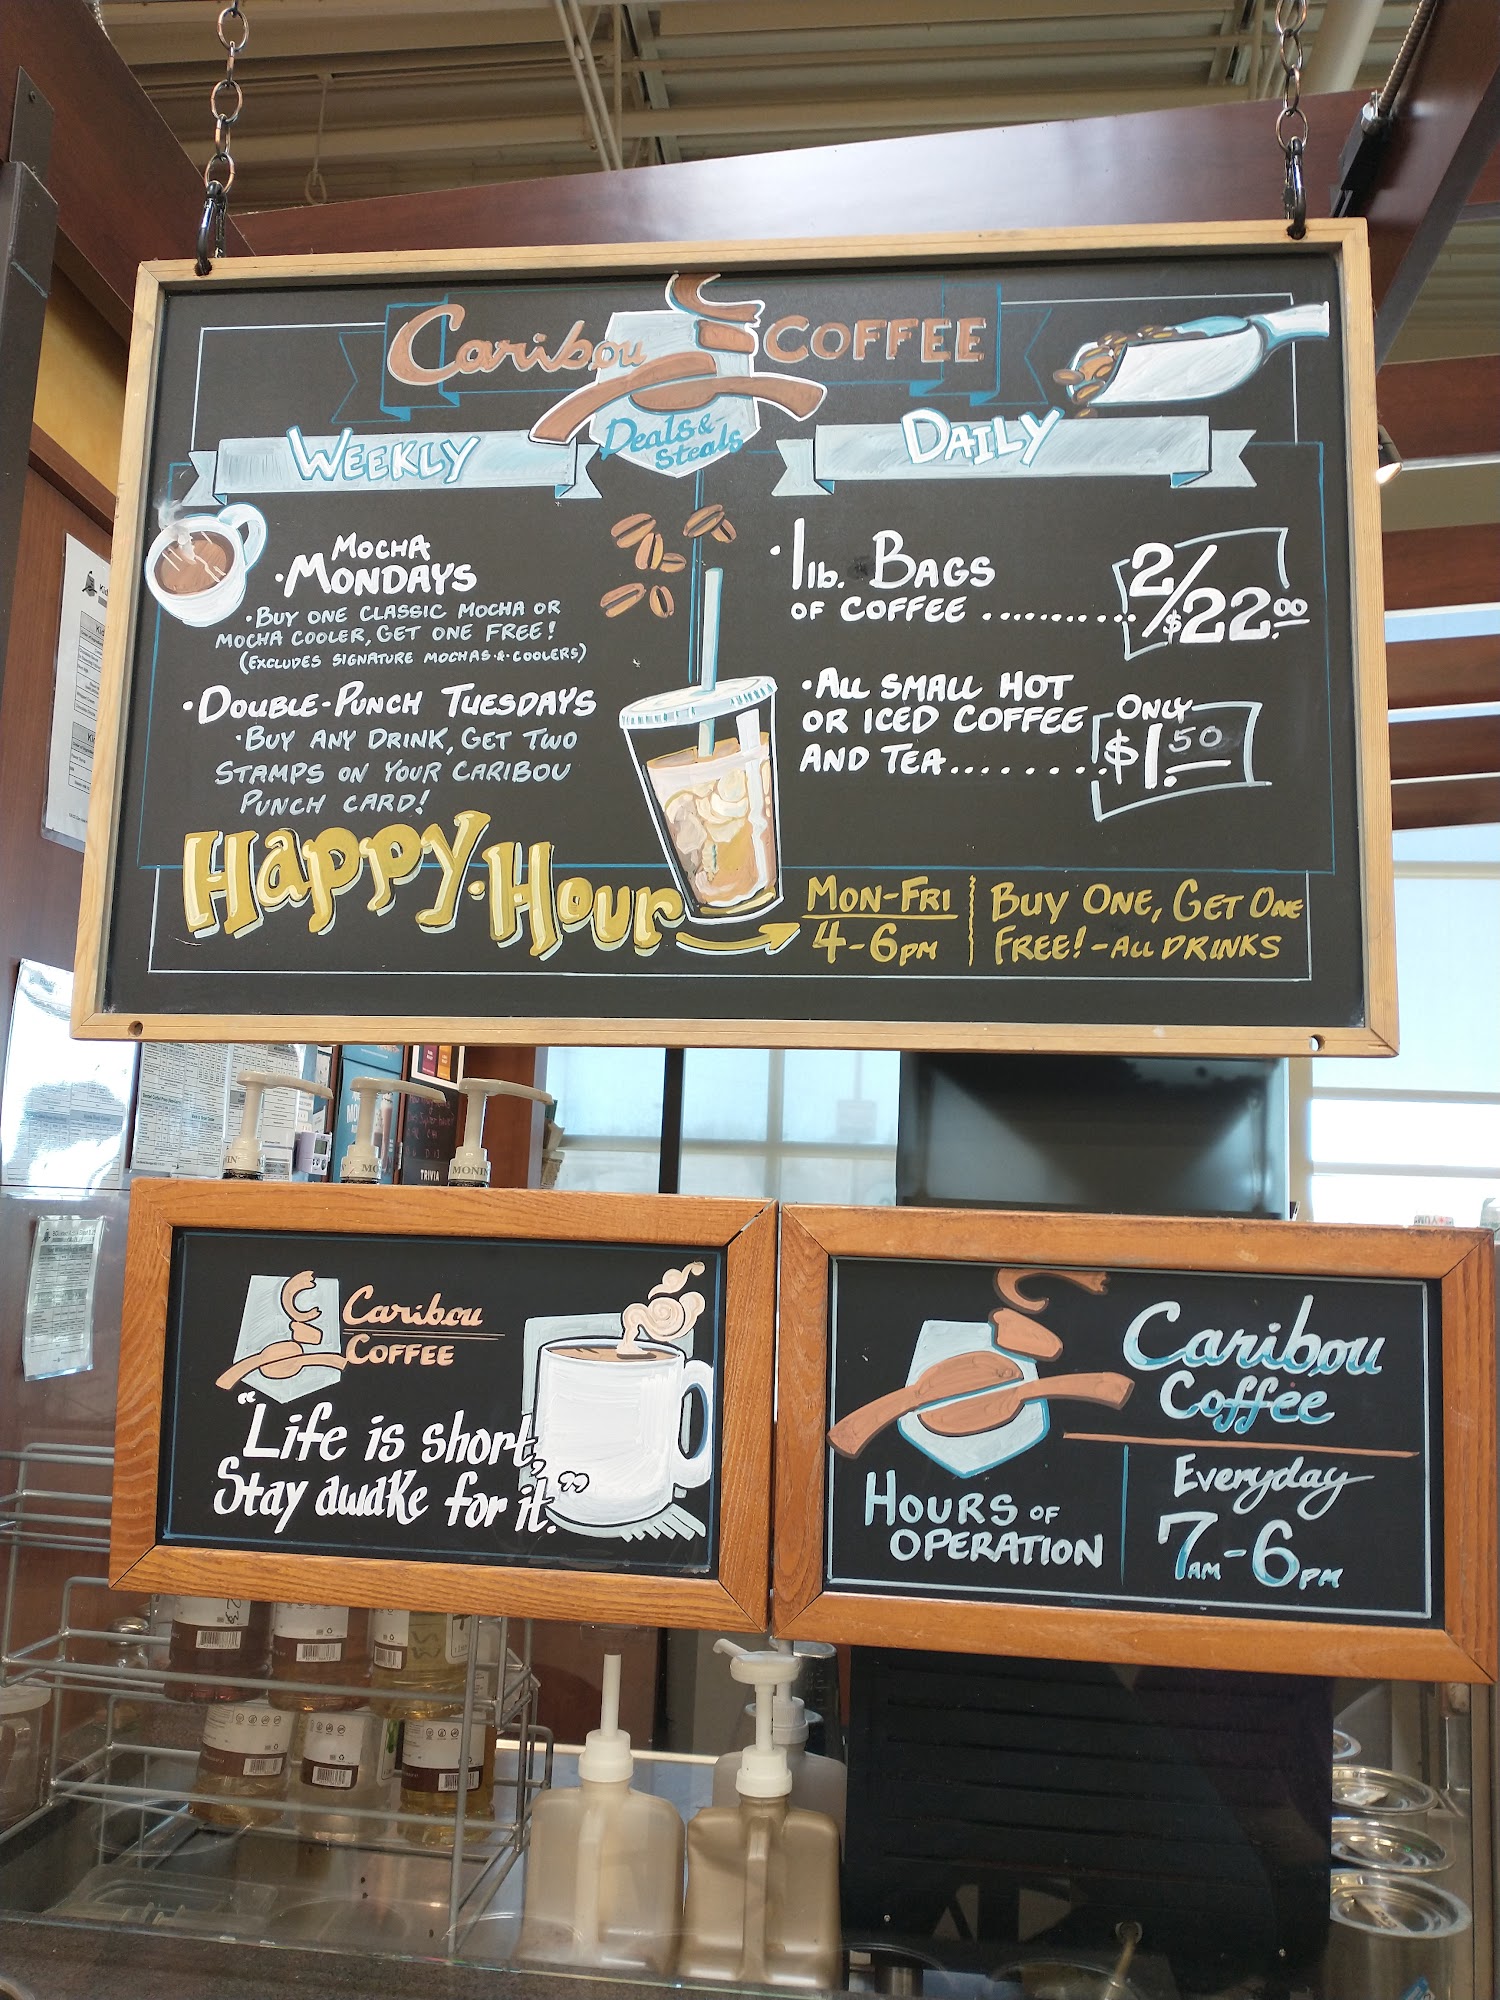 Caribou COFFEE
Deals &
Steals
WEEKLY
MOCHA
·MONDAYS
·BUY ONE CLASSIC MOCHA OR
MOCHA COOLER, GET ONE FREE!
(EXCLUDES SIGNATURE MOCHAS & COOLERS)
·DOUBLE-PUNCH TUESDAYS
·BUY ANY DRINK, GET TWO
STAMPS ON YOUR CARIBOU
PUNCH CARD!
DAILY
·1 lb. BAGS
OF COFFEE .......... 2/$22.00
·ALL SMALL HOT
OR ICED COFFEE ONLY
AND TEA........ $1.50
Happy·Hour
MON-FRI
4-6PM
BUY ONE, GET ONE
FREE! - ALL DRINKS
TRIVIA
MONIN
Caribou
COFFEE
"Life is short,
Stay awake for it."
Caribou
Coffee
HOURS OF
OPERATION
Everyday
7AM-6PM